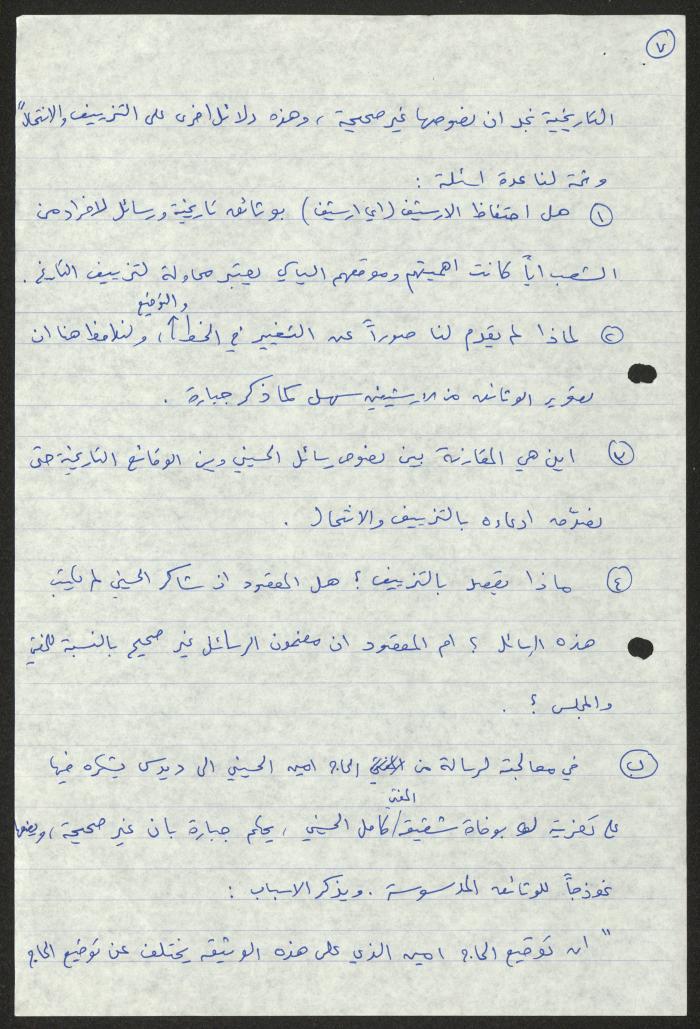 ٧
التاريخية نجد ان نصوصها غير صحيحة ، وهذه دلائل اخرى على التزييف والانتحال"
وثمة لنا عدة اسئلة :
١ هل احتفاظ الارشيف (اي ارشيف) بوثائق تاريخية ورسائل لافراد من
الشعب اياً كانت اهميتهم وموقعهم السياسي يعتبر محاولة لتزييف التاريخ .
والتوقيع
٢ لماذا لم يقدم لنا صوراً عن التغيير في الخط ، ولنلاحظ هنا ان
تصوير الوثائق من الارشيف سهل كما ذكر جبارة .
٣ اين هي المقارنة بين نصوص رسائل الحسيني وبين الوقائع التاريخية حتى
نصدّق ادعاءه بالتزييف والانتحال .
٤ ماذا يقصد بالتزييف ؟ هل المقصود ان شاكر الحسيني لم يكتب
هذه الرسائل ؟ ام المقصود ان مضمون الرسائل غير صحيح بالنسبة للمفتي
والمجلس ؟ .
ب في معالجته لرسالة من الحاج امين الحسيني الى ديدس يشكره فيها
المفتي
على تعزيته له بوفاة شقيقه كامل الحسيني ، يحكم جبارة بان غير صحيحة ، ويضعها
نموذجاً للوثائق المدسوسة . ويذكر الاسباب :
" ان توقيع الحاج امين الذي على هذه الوثيقه يختلف عن توقيع الحاج